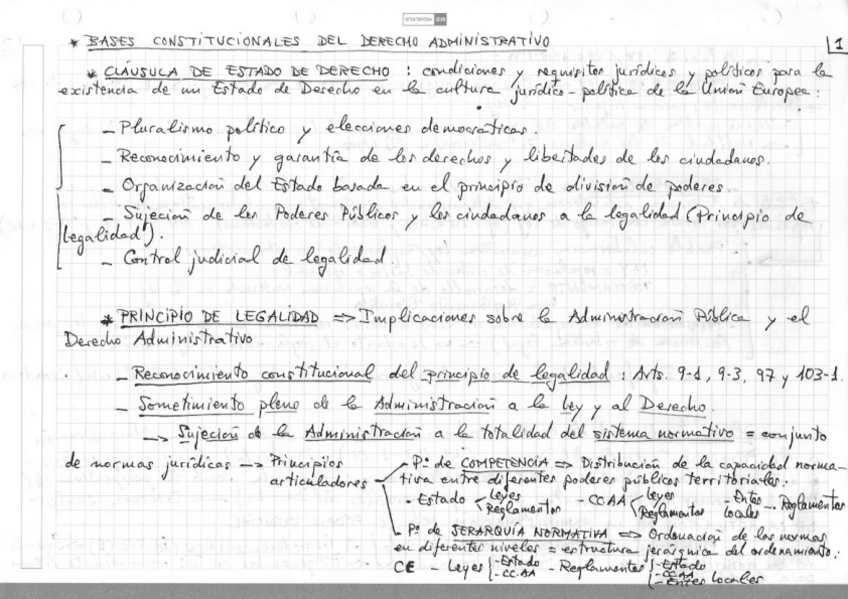 * BASES CONSTITUCIONALES DEL DERECHO ADMINISTRATIVO
1
* CLÁUSULA DE ESTADO DE DERECHO : condiciones y requisitos jurídicos y políticos para la
existencia de un Estado de Derecho en la cultura jurídico-política de la Unión Europea :
- Pluralismo político y elecciones democráticas.
- Reconocimiento y garantía de los derechos y libertades de los ciudadanos.
- Organización del Estado basada en el principio de división de poderes.
- Sujeción de los Poderes Públicos y los ciudadanos a la legalidad (Principio de
legalidad).
- Control judicial de legalidad.
* PRINCIPIO DE LEGALIDAD => Implicaciones sobre la Administración Pública y el
Derecho Administrativo.
- Reconocimiento constitucional del principio de legalidad : Arts. 9-1, 9-3, 97 y 103-1.
- Sometimiento pleno de la Administración a la Ley y al Derecho.
-> Sujeción de la Administración a la totalidad del sistema normativo = conjunto
de normas jurídicas -> Principios articuladores
- Pº de COMPETENCIA => Distribución de la capacidad norma-
tiva entre diferentes poderes públicos territoriales:
- Estado < Leyes Reglamentos - CCAA < Leyes Reglamentos - Entes Locales - Reglamentos
- Pº de JERARQUÍA NORMATIVA => Ordenación de las normas
en diferentes niveles = estructura jerárquica del ordenamiento:
CE - Leyes { - Estado - CC.AA - Reglamentos { - Estado - CCAA - Entes Locales